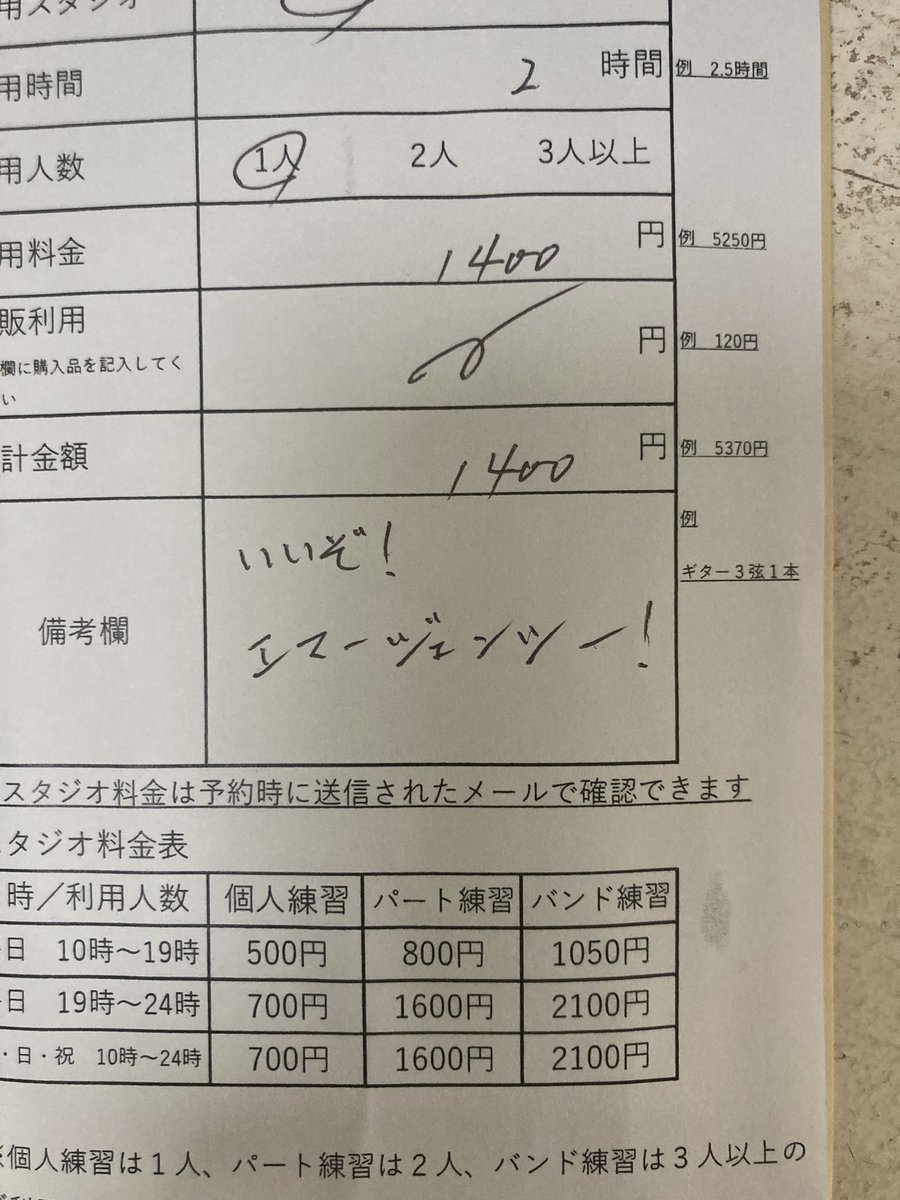 用スタジオ
用時間 2 時間 例 2.5時間
用人数 1人 2人 3人以上
用料金 1400 円 例 5250円
販利用 円 例 120円
欄に購入品を記入してく
い
計金額 1400 円 例 5370円
備考欄 いいぞ!
エマージェンツー!
例
ギター3弦1本
スタジオ料金は予約時に送信されたメールで確認できます
タジオ料金表
時/利用人数 個人練習 パート練習 バンド練習
日 10時~19時 500円 800円 1050円
日 19時~24時 700円 1600円 2100円
・日・祝 10時~24時 700円 1600円 2100円
※個人練習は1人、パート練習は2人、バンド練習は3人以上の